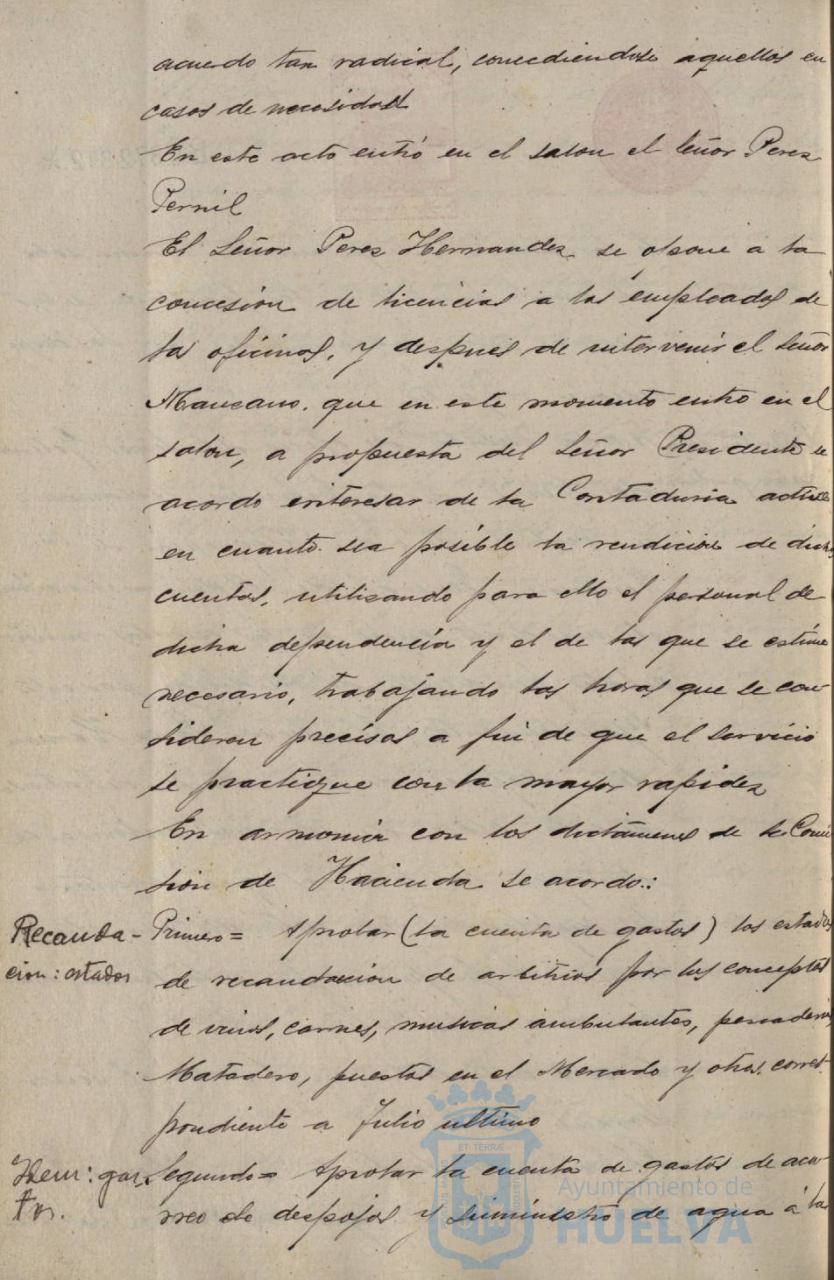 acuerdo tan radical, concediendose aquellas en
casos de necesidad
En este acto entró en el salon el Señor Perez
Pernil
El Señor Perez Hernandez se opone a la
concesion de licencias a los empleados de
las oficinas, y despues de intervenir el Señor
Manzano, que en este momento entro en el
salon, a propuesta del Señor Presidente se
acordo interesar de la Contaduria active
en cuanto sea posible la rendicion de dichas
cuentas, utilisando para ello el personal de
dicha dependencia y el de las que se estime
necesario, trabajando las horas que se con-
sideren precisas a fin de que el servicio
se practique con la mayor rapidez
En armonia con los dictámenes de la Comi
sion de Hacienda se acordo:
Recauda-
cion: estados
Primero= Aprobar (la cuenta de gastos) los estados
de recaudacion de arbitrios por los conceptos
de vinos, carnes, musicas ambulantes, pescaderia,
Matadero, puestos en el Mercado y otros corres-
pondiente a Julio ultimo
Idem: gas
tos.
Segundo= Aprobar la cuenta de gastos de aca-
rreo de despojos y suministro de agua á las
ET TERRÆ
Ayuntamiento de
HUELVA